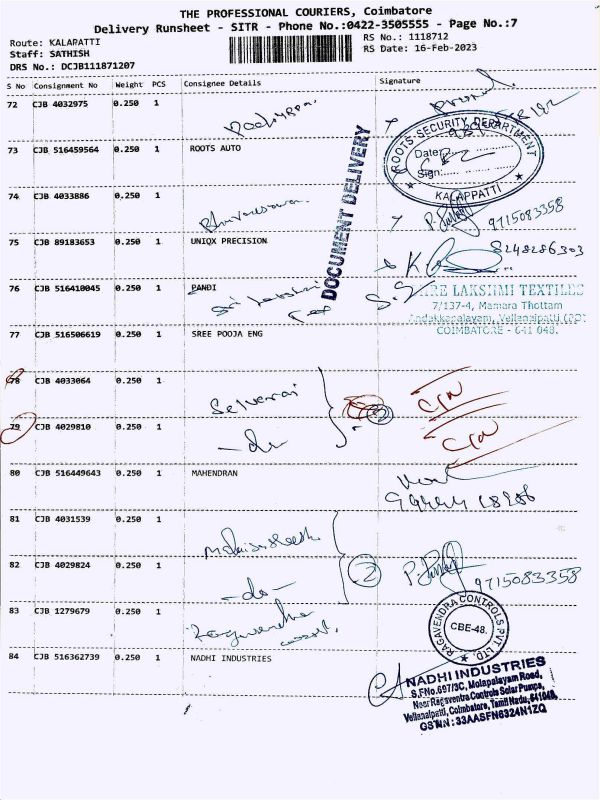 THE PROFESSIONAL COURIERS, Coimbatore
Delivery Runsheet - SITR - Phone No.:0422-3505555 - Page No.:7
Route: KALAPATTI
Staff: SATHISH
DRS No.: DCJB111871207
RS No.: 1118712
RS Date: 16-Feb-2023
S No Consignment No Weight PCS Consignee Details Signature
72 CJB 4032975 0.250 1
73 CJB 516459564 0.250 1 ROOTS AUTO
ROOTS-SECURITY DEPARTMENT
Date:
Sign:
KALAPPATTI
DOCUMENT DELIVERY
74 CJB 4033886 0.250 1 Bhuvaneswari
9715083358
75 CJB 89183653 0.250 1 UNIQX PRECISION
8248286303
76 CJB 516410045 0.250 1 PANDI
Sri Lakshmi
SHRE LAKSHMI TEXTILES
7/137-4, Mamara Thottam
Andakkapalayam, Vellanaipatti (PO)
COIMBATORE - 641 048.
77 CJB 516506619 0.250 1 SREE POOJA ENG
78 CJB 4033064 0.250 1 Selvaraj
79 CJB 4029810 0.250 1 -do-
80 CJB 516449643 0.250 1 MAHENDRAN
81 CJB 4031539 0.250 1
82 CJB 4029824 0.250 1 -do-
2
9715083358
83 CJB 1279679 0.250 1 Ragavendra
RAGAVENDRA CONTROLS PVT LTD.
CBE-48.
84 CJB 516362739 0.250 1 NADHI INDUSTRIES
NADHI INDUSTRIES
S.FNo.697/3C, Molapalayam Road,
Near Ragaventra Controls Solar Pumps,
Vellanaipatti, Coimbatore, Tamil Nadu, 641048,
GSTNN : 33AASFN6324N1ZQ